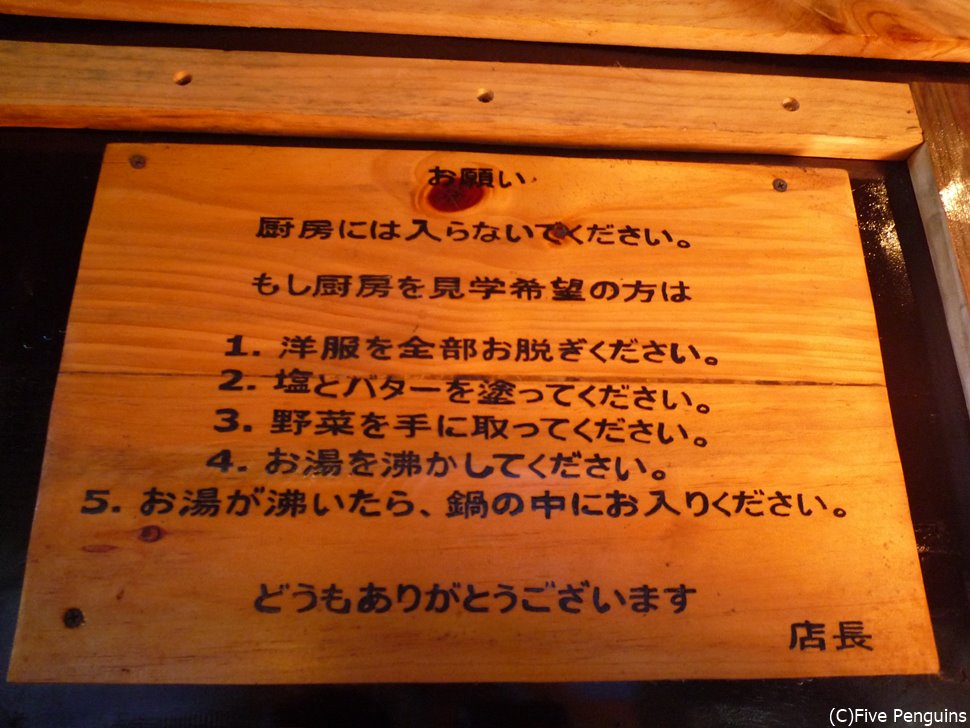 お願い
厨房には入らないでください。
もし厨房を見学希望の方は
1. 洋服を全部お脱ぎください。
2. 塩とバターを塗ってください。
3. 野菜を手に取ってください。
4. お湯を沸かしてください。
5. お湯が沸いたら、鍋の中にお入りください。
どうもありがとうございます
店長
(C)Five Penguins